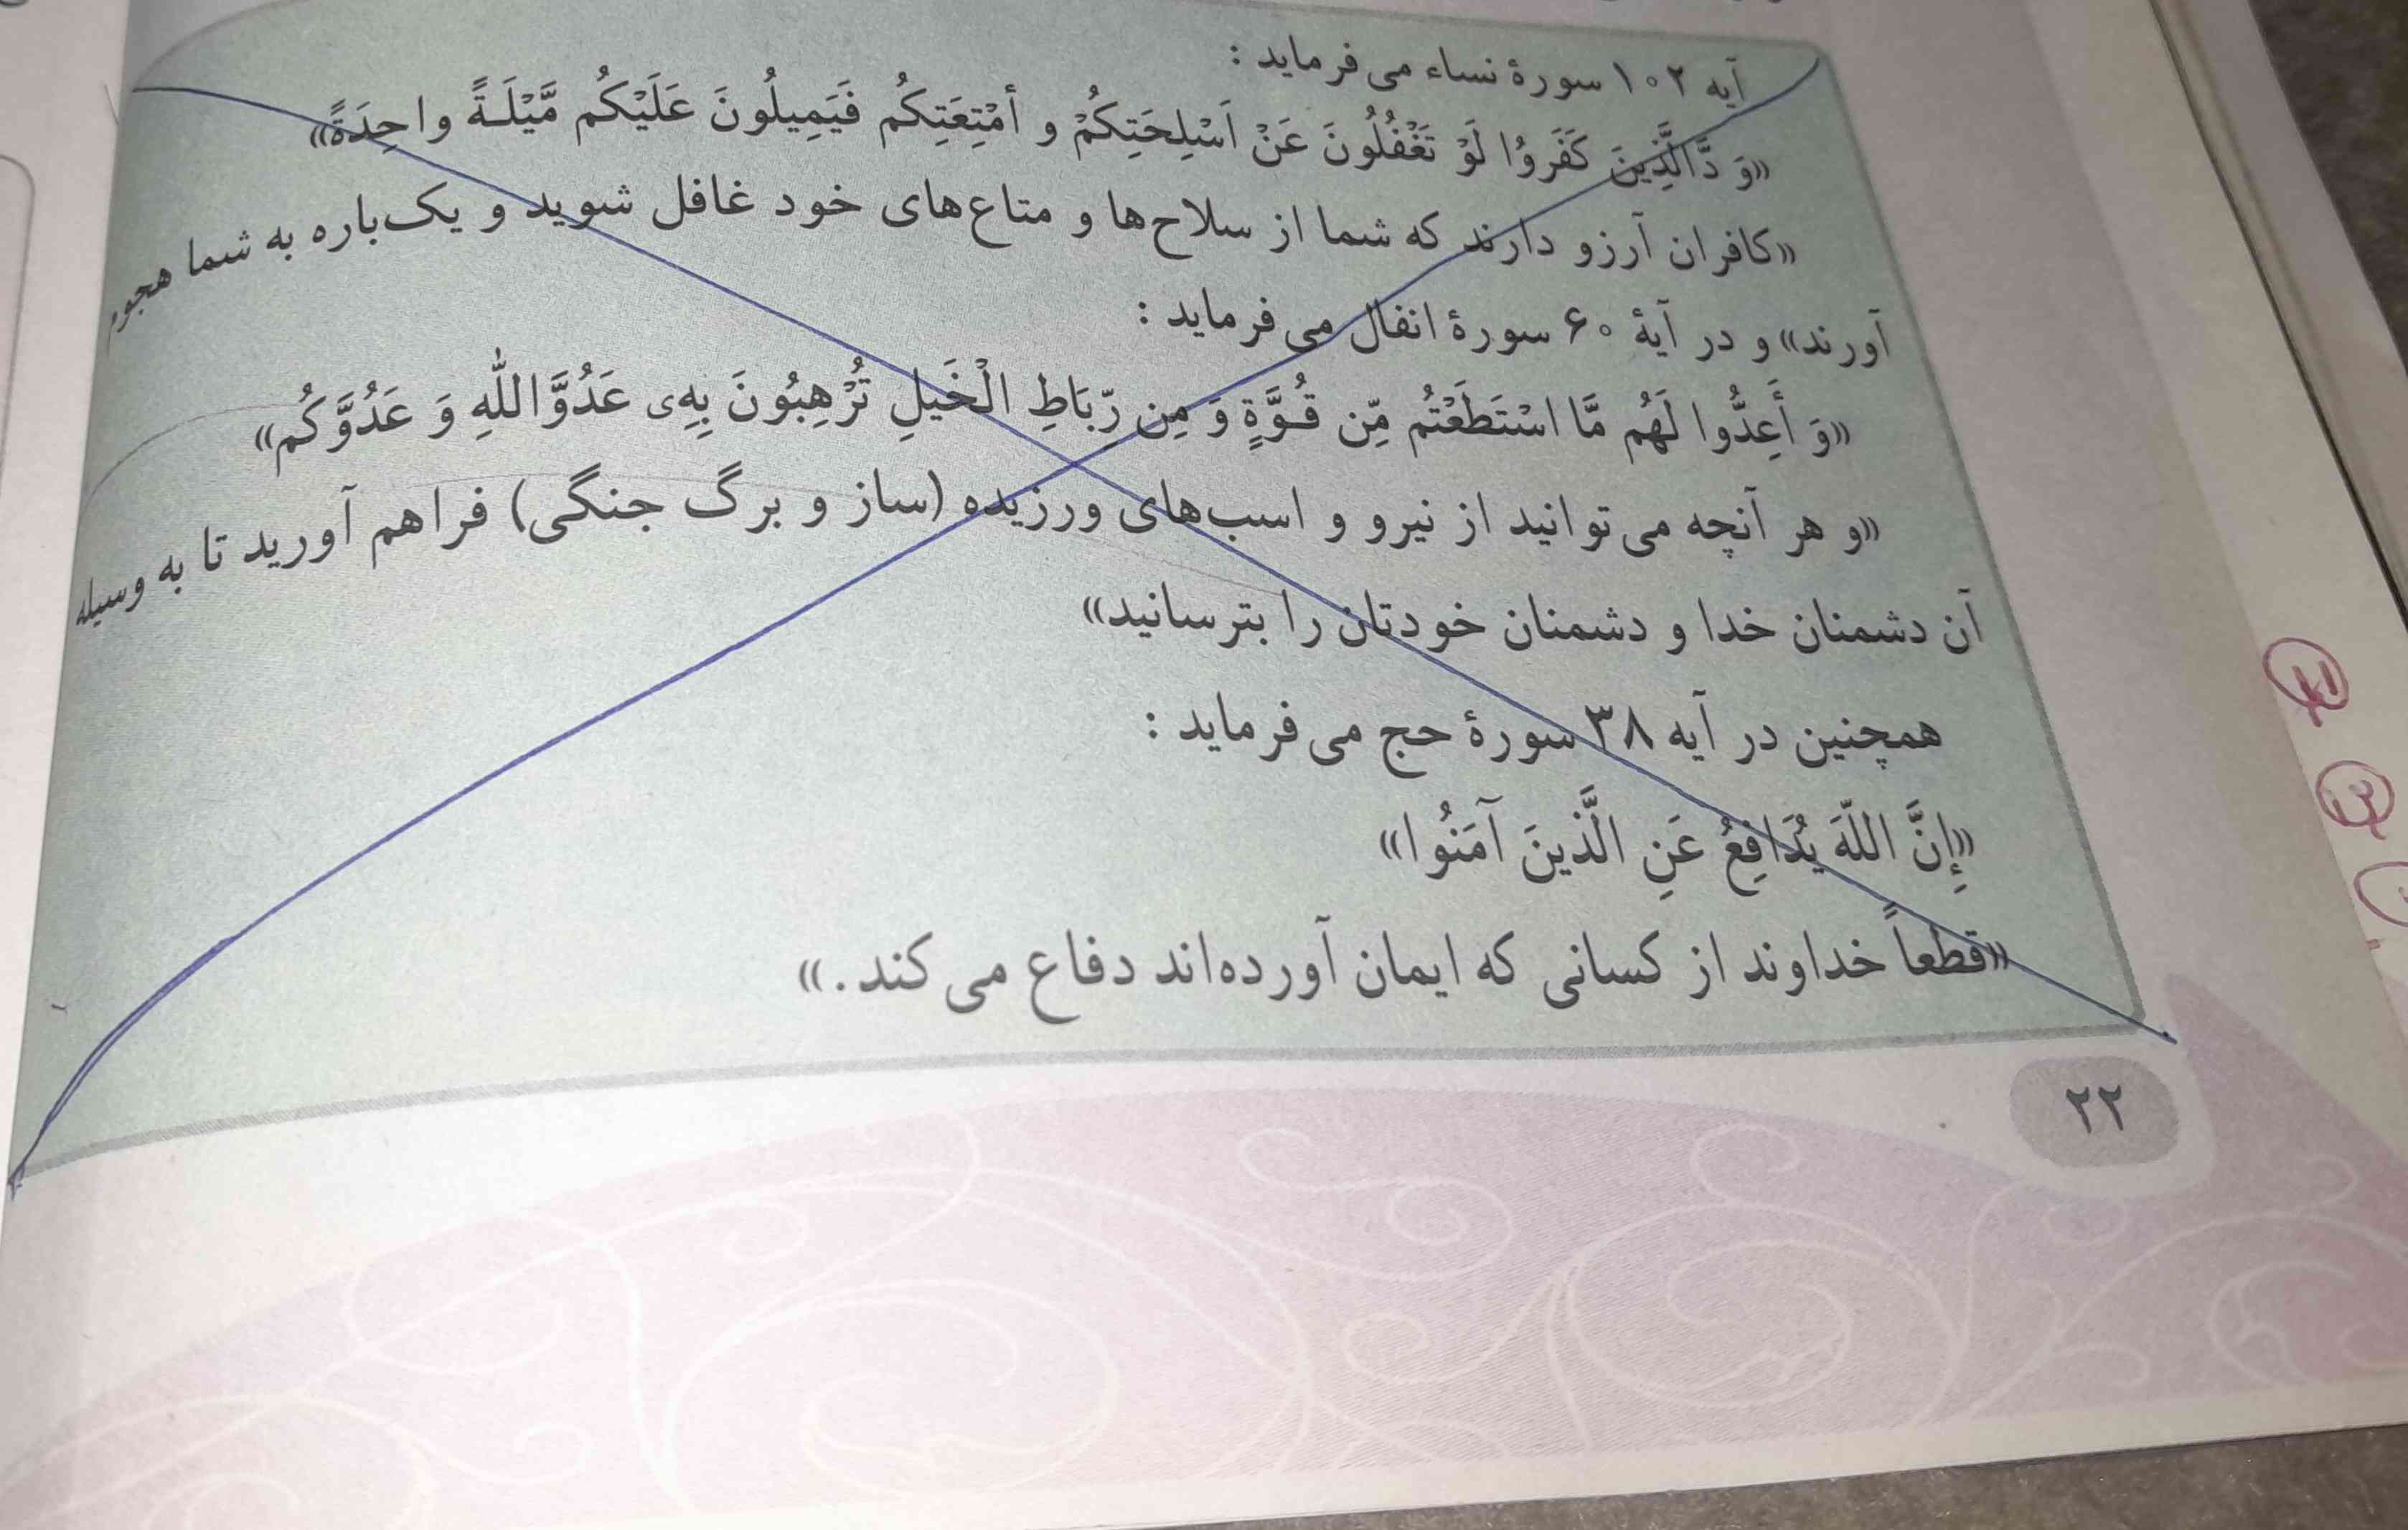 آیه ۱۰۲ سورهٔ نساء می‌فرماید :
«وَ دَّالَّذِینَ کَفَرَوُا لَوْ تَغْفُلُونَ عَنْ اَسْلِحَتِکُمْ و أمْتِعَتِکُم فَیَمِیلُونَ عَلَیْکُم مَّیْلَـةً واحِدَةً»
«کافران آرزو دارند که شما از سلاح‌ها و متاع‌های خود غافل شوید و یک‌باره به شما هجوم
آورند» و در آیهٔ ۶۰ سورهٔ انفال می‌فرماید :
«وَ أَعِدُّوا لَهُم مَّا اسْتَطَعْتُم مِّن قُـوَّةٍ وَ مِن رِّبَاطِ الْخَیلِ تُرْهِبُونَ بِهِ‌ی عَدُوَّاللّٰهِ وَ عَدُوَّکُم»
«و هر آنچه می‌توانید از نیرو و اسب‌های ورزیده (ساز و برگ جنگی) فراهم آورید تا به وسیله
آن دشمنان خدا و دشمنان خودتان را بترسانید»
همچنین در آیه ۳۸ سورهٔ حج می‌فرماید :
«إِنَّ اللّهَ یُدَافِعُ عَنِ الَّذینَ آمَنُوا»
«قطعاً خداوند از کسانی که ایمان آورده‌اند دفاع می‌کند.»
۲۲